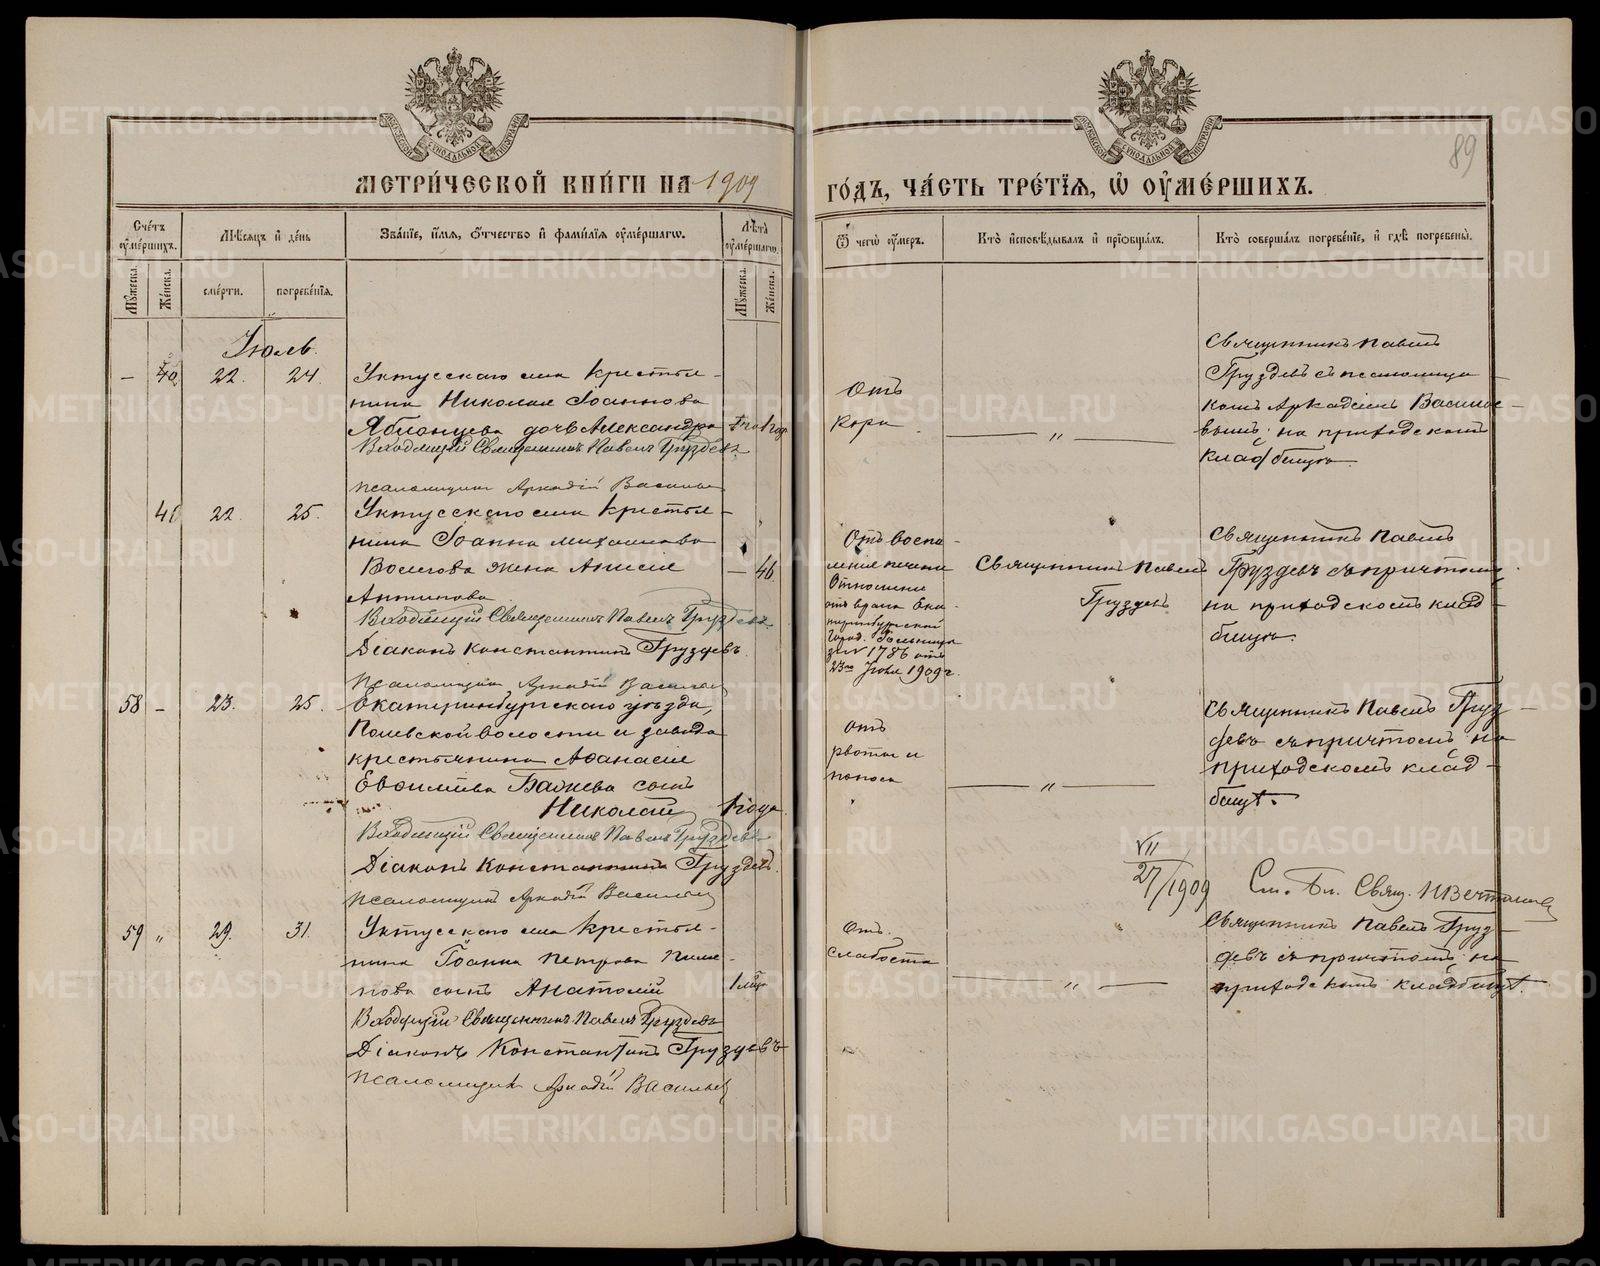 МЕТРИ́ЧЕСКОЙ КНИ́ГИ НА 1909
ГО́ДЪ, ЧА́СТЬ ТРЕ́ТІѦ, Ѡ҆ ОУ҆МЕ́РШИХЪ.
89
Сче́тъ оу҆ме́ршихъ.
Мꙋ́жеска.
Же́нска.
Мѣ́сѧцъ и҆ де́нь
сме́рти.
погребе́нїѧ.
Зва́нїе, и҆́мѧ, ѻ҆́тчество и҆ фами́лїѧ оу҆ме́ршагѡ.
Лѣ́та оу҆ме́ршагѡ.
Мꙋ́жеска.
Же́нска.
Ѿ чегѡ̀ оу҆́меръ.
Кто̀ и҆сповѣ́дывалъ и҆ прїѡбща́лъ.
Кто̀ соверша́лъ погребе́нїе, и҆ гдѣ̀ погребены̀.
Іюль.
— 40 22. 24.
Уктусскаго села крестья-
нина Николая Іоаннова
Яблонцева дочь Александра
1 год
Входящій Священникъ Павелъ Груздевъ
псаломщикъ Аркадій Васильевъ
Отъ
кори
— " —
Священникъ Павелъ
Груздевъ съ псаломщи
комъ Аркадіемъ Василье-
вымъ; на приходскомъ
кладбищѣ.
41 22. 25.
Уктусскаго села крестья-
нина Іоанна Михаилова
Волегова жена Анисія
Антипова
— 46.
Входящій Священникъ Павелъ Груздевъ
Діаконъ Константинъ Груздевъ.
Псаломщикъ Аркадій Васильевъ
Отъ воспа-
ленія печени
Отношеніе
отъ врача Ека-
теринбургской
Город. больницы
за № 1786 отъ
23го Іюля 1909 г.
Священникъ Павелъ
Груздевъ
Священникъ Павелъ
Груздевъ съ причтомъ
на приходскомъ клад-
бищѣ.
58 — 23. 25.
Екатеринбургскаго уѣзда,
Полевской волости и завода
крестьянина Аѳанасія
Евѳиміева сынъ
Николай 1 года
Входящій Священникъ Павелъ Груздевъ
Діаконъ Константинъ Груздевъ.
Псаломщикъ Аркадій Васильевъ
отъ
рвоты и
поноса
— " —
Священникъ Павелъ Груз-
девъ съ причтомъ на
приходскомъ клад-
бищѣ.
VII
27/1909 См. Бл. Свящ.
59 " 29. 31.
Уктусскаго села крестья-
нина Іоанна Петрова Пиме-
нова сынъ Анатолій
1 мца
Входящій Священникъ Павелъ Груздевъ
Діаконъ Константинъ Груздевъ
Псаломщикъ Аркадій Васильевъ
Отъ
слабости
— " —
Священникъ Павелъ Груз-
девъ съ причтомъ на
приходскомъ кладбищѣ.
METRIKI.GASO-URAL.RU